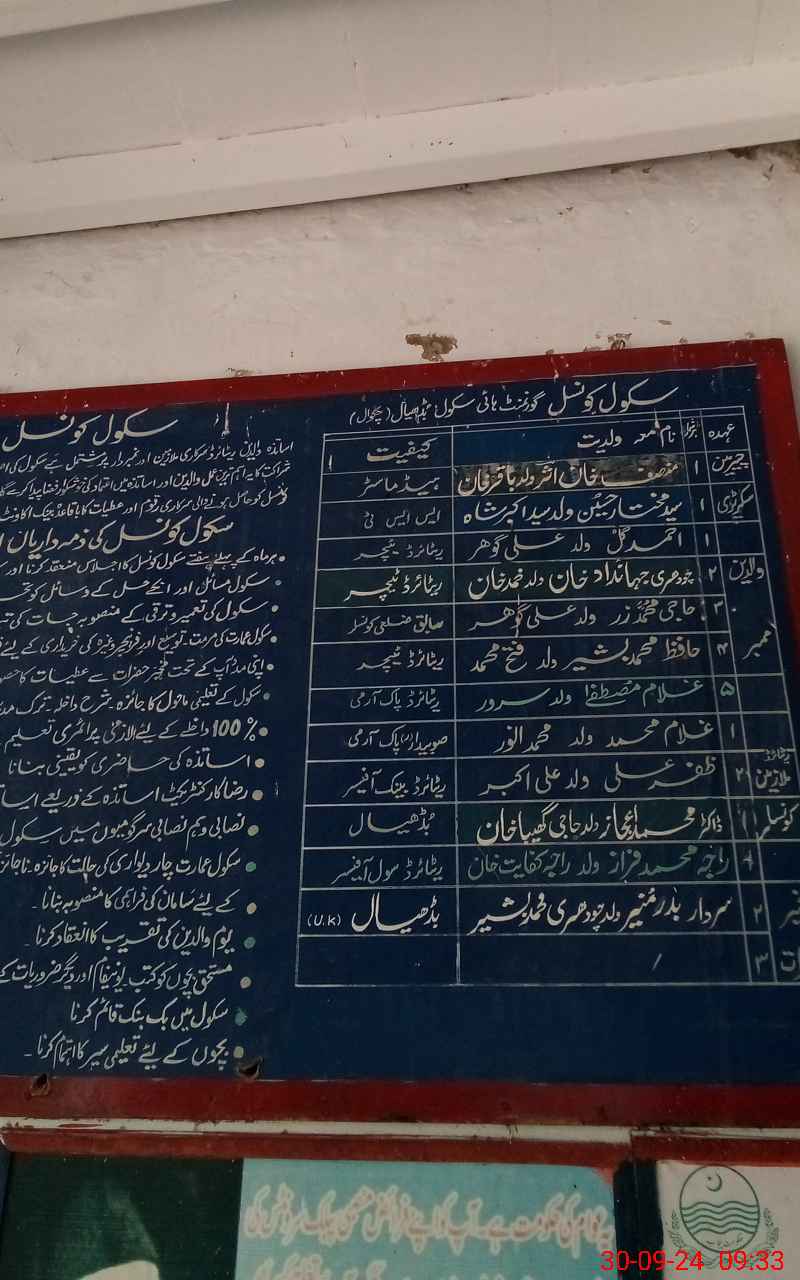 سکول کونسل گورنمنٹ ہائی سکول بڈھیال (چکوال)
عہدہ نام معہ ولدیت کیفیت
چیرمین ۱ منصف خان اثر ولد باقر خان ہیڈ ماسٹر
سیکرٹری ۱ سید مختار حسین ولد سید اکبر شاہ ایس ایس ٹی
۱ احمد گل ولد علی گوھر ریٹائرڈ ٹیچر
والدین ۲ چودھری جہانداد خان ولد محمد خان ریٹائرڈ ٹیچر
۳ حاجی محمد زر ولد علی گوھر سابق ضلعی کونسلر
ممبر ۴ حافظ محمد بشیر ولد فتح محمد ریٹائرڈ ٹیچر
۵ غلام مصطفےٰ ولد سرور ریٹائرڈ پاک آرمی
۱ غلام محمد ولد محمد انور صوبیدار (ر) پاک آرمی
ریٹائرڈ ملازمین ۲ ظفر علی ولد علی اکبر ریٹائرڈ بینک آفیسر
کونسلر ۱ ڈاکٹر محمد اعجاز ولد حاجی گھیبا خان بڈھیال
راجہ محمد فراز ولد راجہ کفایت خان ریٹائرڈ سول آفیسر
۲ سردار بدر منیر ولد چودھری محمد بشیر بڈھیال (U.K)
۳ /
سکول کونسل
اساتذہ والدین ریٹائرڈ سرکاری ملازمین اور نمبردار پر مشتمل ہے سکول کی
شراکت کا یہ اہم ترین عمل والدین اور اساتذہ میں اعتماد کی خوشگوار فضا پیدا کرے گا
کونسل کو حاصل ہونے والی سرکاری رقوم اور عطیات کا باقاعدہ بینک اکاونٹ
سکول کونسل کی ذمہ داریاں
• ہر ماہ کے پہلے ہفتے سکول کونسل کا اجلاس منعقد کرنا اور
• سکول مسائل اور انکے حل کے وسائل کو
• سکول کی تعمیر و ترقی کے منصوبہ جات کی
• سکول عمارت کی مرمت، توسیع اور فرنیچر وغیرہ کی خریداری کے لیے
• اپنی مدد آپ کے تحت مخیر حضرات سے عطیات کا
• سکول کے تعلیمی ماحول کا جائزہ۔ شرح داخلہ۔ ترک
• 100% داخلے کے لیے لازمی پرائمری تعلیم
• اساتذہ کی حاضری کو یقینی بنانا
• رضاکار کنٹریکٹ اساتذہ کے ذریعے
• نصابی و ہم نصابی سرگرمیوں میں سکول
• سکول عمارت چار دیواری کی حالت کا جائزہ۔
• کے لیے سامان کی فراہمی کا منصوبہ بنانا۔
• یوم والدین کی تقریب کا انعقاد کرنا۔
• مستحق بچوں کو کتب یونیفام اور دیگر ضروریات
• سکول میں بک بنک قائم کرنا
• بچوں کے لیے تعلیمی سیر کا اہتمام کرنا۔
30-09-24 09:33